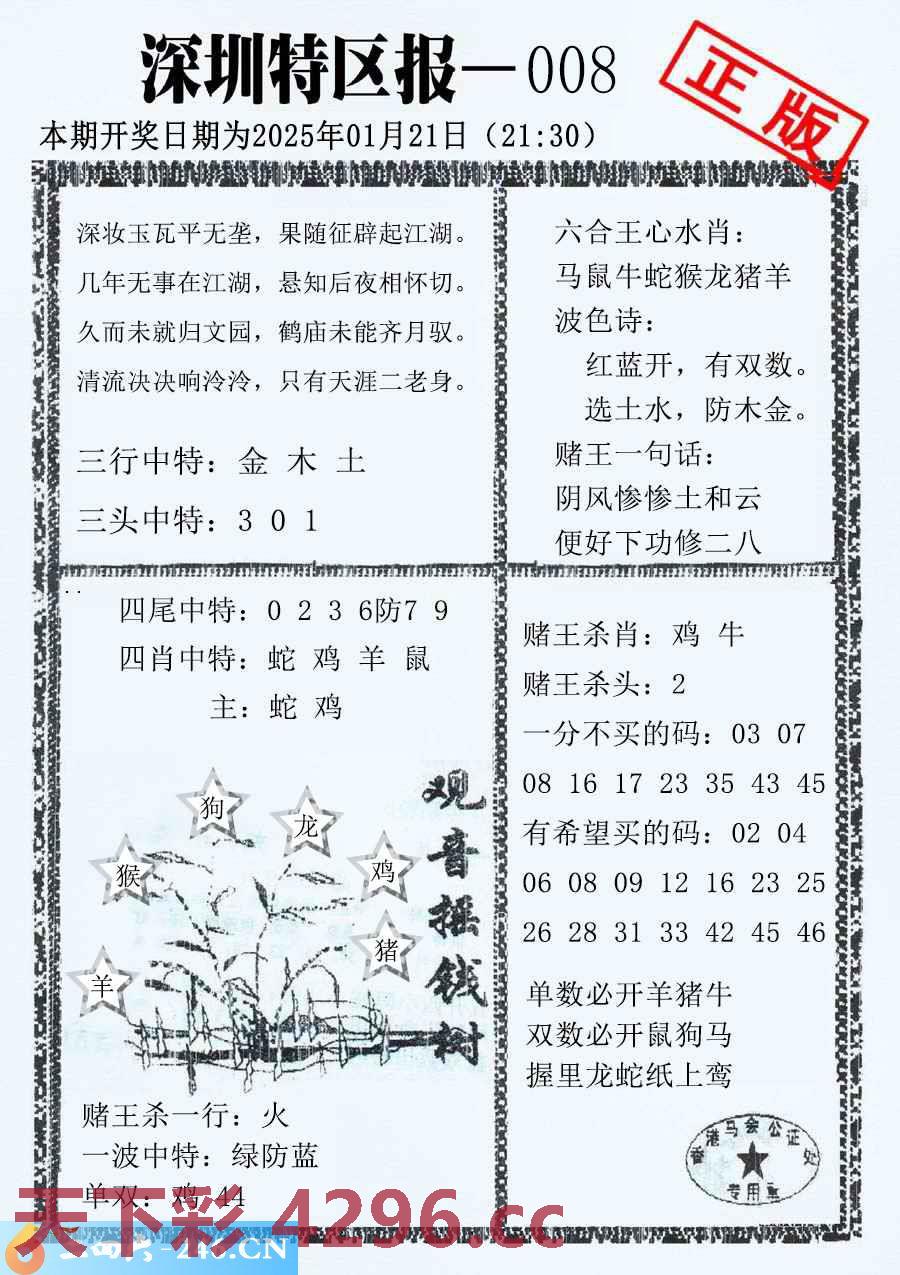 深圳特区报－008
正版
本期开奖日期为2025年01月21日（21:30）
深妆玉瓦平无垄，果随征辟起江湖。
几年无事在江湖，悬知后夜相怀切。
久而未就归文园，鹤庙未能齐月驭。
清流决决响泠泠，只有天涯二老身。
三行中特：金 木 土
三头中特：3 0 1
六合王心水肖：
马鼠牛蛇猴龙猪羊
波色诗：
红蓝开，有双数。
选土水，防木金。
赌王一句话：
阴风惨惨土和云
便好下功修二八
四尾中特：0 2 3 6防7 9
四肖中特：蛇 鸡 羊 鼠
主：蛇 鸡
狗
龙
猴
鸡
猪
羊
观音摇钱树
赌王杀一行：火
一波中特：绿防蓝
单双：鸡 44
赌王杀肖：鸡 牛
赌王杀头：2
一分不买的码：03 07
08 16 17 23 35 43 45
有希望买的码：02 04
06 08 09 12 16 23 25
26 28 31 33 42 45 46
单数必开羊猪牛
双数必开鼠狗马
握里龙蛇纸上鸾
香港马会公证处
专用章
天下彩 4296.cc
246.CN